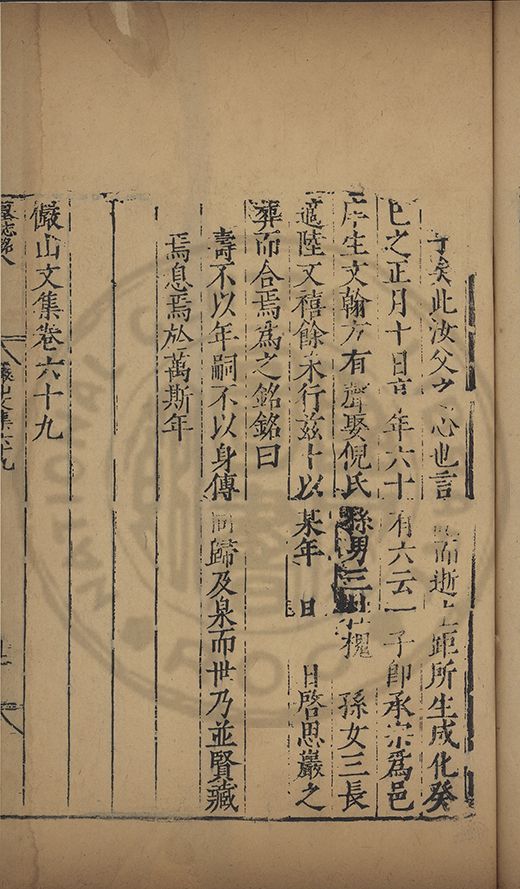 矣此汝父之心也言 而逝 距所生成化癸
巳之正月十日 年六十有六云一子即承宗爲邑
庠生文翰方有聲娶倪氏孫男三 槐 孫女三長
適陸文禧餘未行茲卜以某年 日啓思巖之
葬而合焉爲之銘銘曰
壽不以年嗣不以身傳 歸及泉而世乃並賢藏
焉息焉於萬斯年
儼山文集卷六十九
墓誌銘八